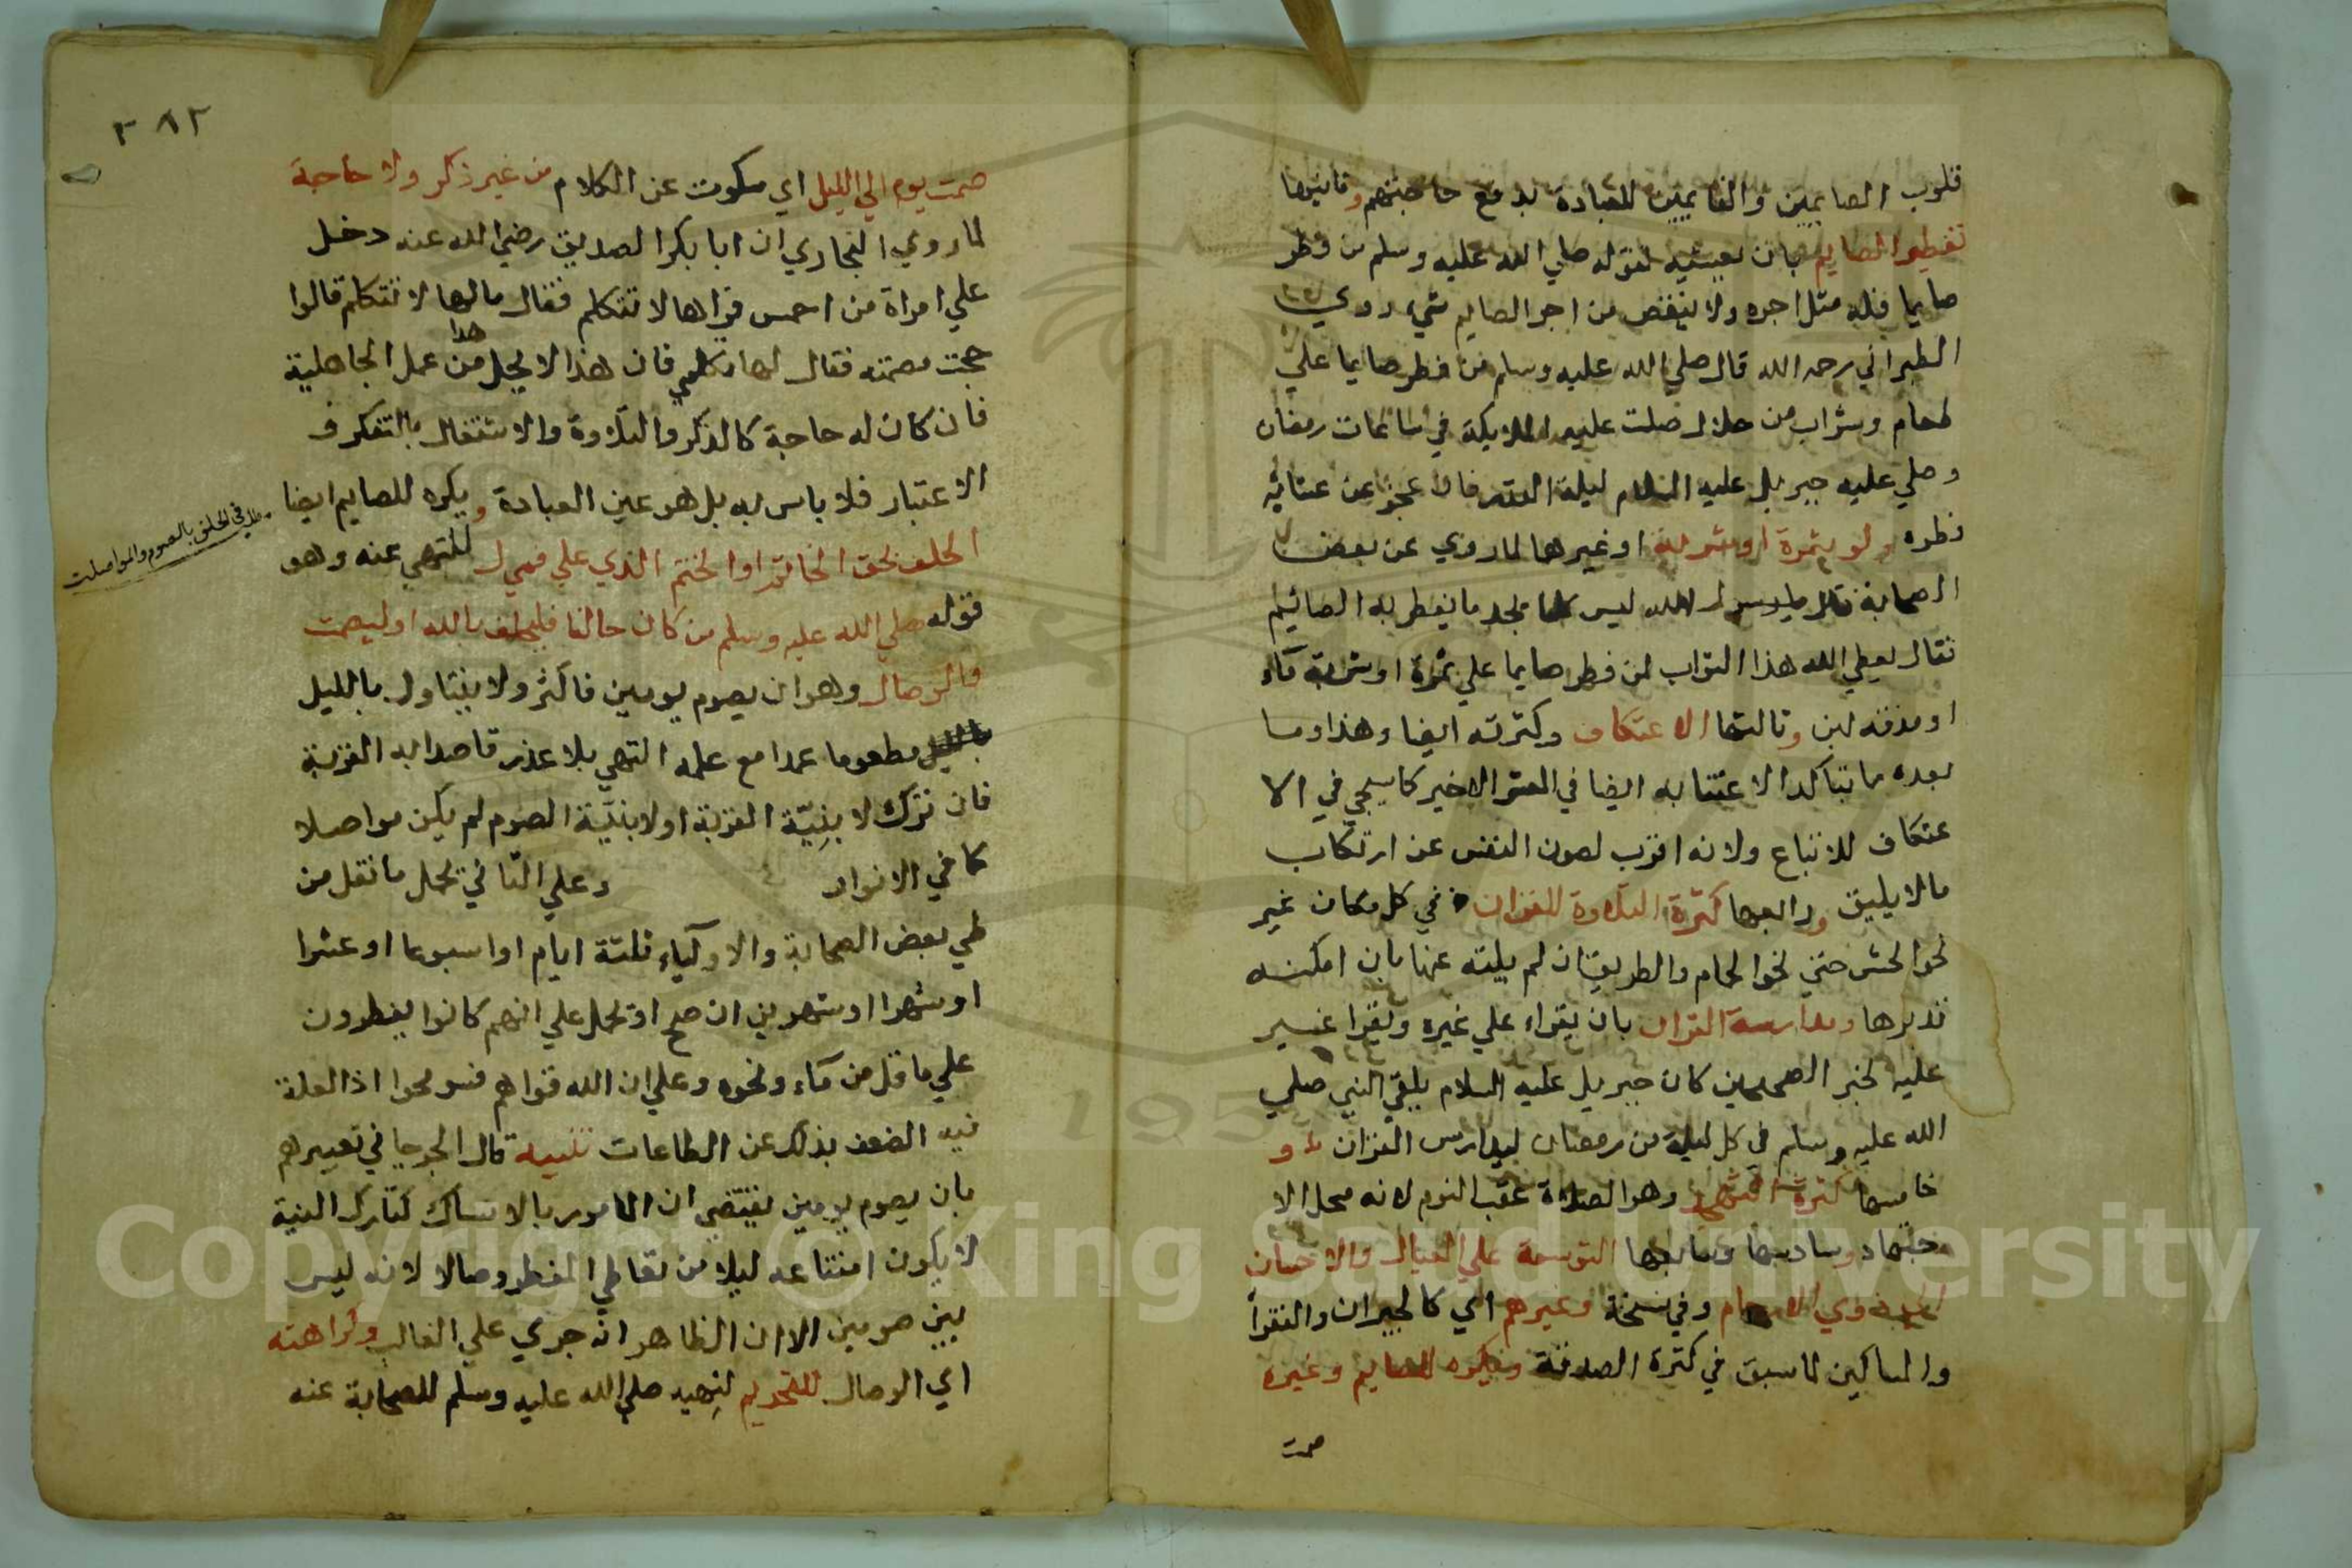 قلوب الصايمين والقايمين للعبادة بدفع حاجتهم وثانيها
تفطير الصايم بان يعشيه لقوله صلي الله عليه وسلم من فطر
صايما فله مثل اجره ولا ينقص من اجر الصايم شيء روي
الطبراني رحمه الله قال صلي الله عليه وسلم من فطر صايما علي
طعام وشراب من حلال صلت عليه الملايكة في ساعات رمضان
وصلي عليه جبريل عليه السلام ليلة القدر فان عجز عن عشائه
فطره ولو بتمرة او شربة او غيرها لما روي عن بعض
الصحابة قال يا رسول الله ليس كلنا يجد ما يفطر به الصائم
فقال يعطي الله هذا الثواب لمن فطر صايما علي تمرة او شربة مآء
او مذقة لبن وثالثها الاعتكاف وكثرته ايضا وهذا وما
بعده مما يتاكد الاعتنا به ايضا في العشر الاخير كما سيجي في الا
عتكاف للاتباع ولانه اقرب لصون النفس عن ارتكاب
ما لا يليق ورابعها كثرة التلاوة للقران في كل مكان غير
نحو الحش حتي نحو الحمام والطريق ان لم يلته عنها بان امكنه
تدبرها ومدارسة القران بان يقراء علي غيره ويقرا غيره
عليه لخبر الصحيحين كان جبريل عليه السلام يلقي النبي صلي
الله عليه وسلم في كل ليلة من رمضان ليدارس القران و
خامسها كثرة التهجد وهو الصلاة عقب النوم لانه محل الا
جتهاد وسادسها وسابعها التوسعة علي العيال والاحسان
الي ذوي الارحام وفي نسخة وغيرهم اي كالجيران والفقرآ
والمساكين لما سبق في كثرة الصدقة ويكره للصايم وغيره
صمت
٣٨٢
صمت يوم الي الليل اي سكوت عن الكلام من غير ذكر ولا حاجة
لما روي البخاري ان ابا بكر الصديق رضي الله عنه دخل
علي امراة من احمس فراها لا تتكلم فقال مالها لا تتكلم قالوا
حجت مصمتة فقال لها تكلمي فان هذا لا يحل هذا من عمل الجاهلية
فان كان له حاجة كالذكر والتلاوة والاشتغال بالتفكر و
الاعتبار فلا باس به بل هو عين العبادة ويكره للصايم ايضا
مطلب في الحلف بالصوم والمواصلت
الحلف بحق الخاتم او الختم الذي علي فمي ل للنهي عنه وهو
قوله صلي الله عليه وسلم من كان حالفا فليحلف بالله او ليصمت
والوصال وهو ان يصوم يومين فاكثر ولا يتناول بالليل
مطعوما عمدا مع علمه النهي بلا عذر قاصدا به القربة
فان ترك لا بنِيّة القربة او لا بنيّة الصوم لم يكن مواصلا
كما في الانوار وعلي الثاني يحمل ما نقل من
طي بعض الصحابة والاوليآء ثلثة ايام او اسبوعا او عشرا
او شهرا او شهرين ان صح او يحمل علي انهم كانوا يفطرون
علي ما قل من مآء ونحوه وعلي ان الله قواهم فسومحوا اذ العلة
فيه الضعف بذلك عن الطاعات تنبيه قال الجرجا في تعبيرهم
بان يصوم يومين يقتضي ان المامور بالامساك كتارك النية
لا يكون امتناعه ليلا من تعاطي المفطر وصالا لانه ليس
بين صومين الا ان الظاهر انه جري علي الغالب وكراهته
اي الوصال للتحريم لنِهيه صلي الله عليه وسلم للصحابة عنه